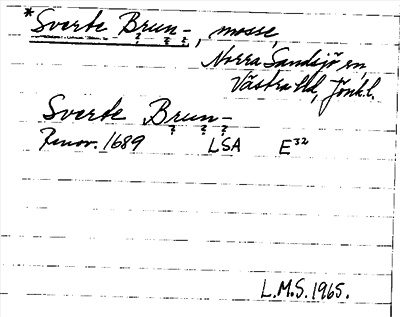 *Sverte Brun-, mosse,
Norra Sandsjö sn,
Västra hd, Jönk.l.
Sverte Brun-
? ? ?
Renov. 1689 LSA E³²
L.M.S. 1965.